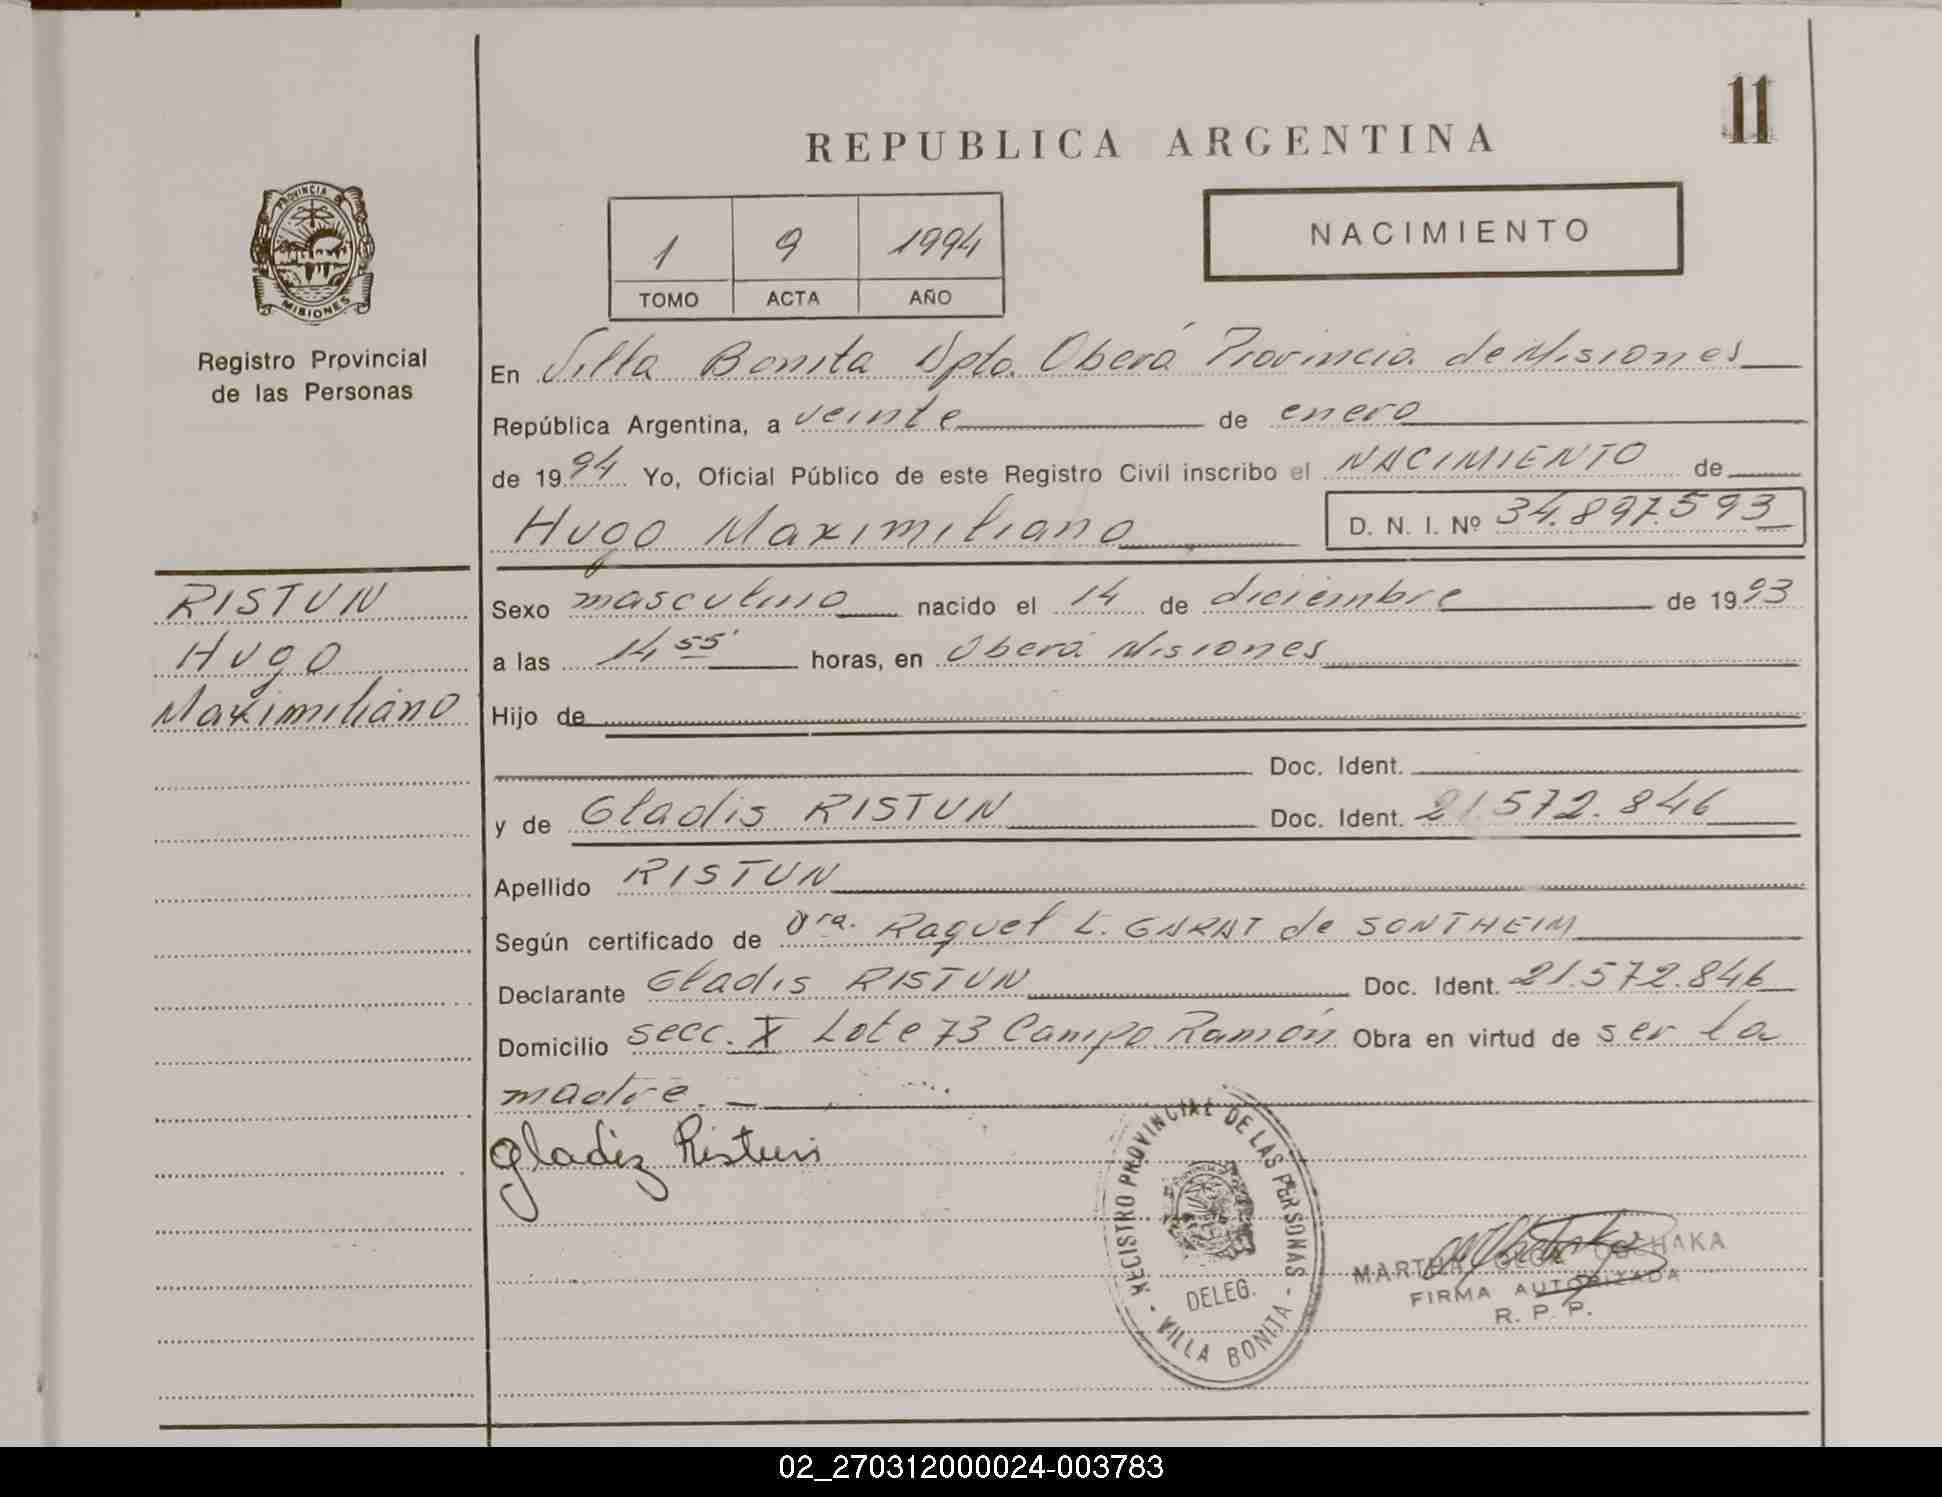 11
REPUBLICA ARGENTINA
PROVINCIA DE MISIONES
Registro Provincial
de las Personas
1 9 1994
TOMO ACTA AÑO
NACIMIENTO
En Villa Bonita Dpto. Oberá Provincia de Misiones
República Argentina, a veinte de enero
de 1994 Yo, Oficial Público de este Registro Civil inscribo el NACIMIENTO de
Hugo Maximiliano D. N. I. Nº 34.897.593
RISTUN
Hugo
Maximiliano
Sexo masculino nacido el 14 de diciembre de 1993
a las 14 55' horas, en Oberá Misiones
Hijo de
Doc. Ident.
y de Gladis RISTUN Doc. Ident. 21.572.846
Apellido RISTUN
Según certificado de Dra. Raquel L. GARAT de SONTHEIM
Declarante Gladis RISTUN Doc. Ident. 21.572.846
Domicilio secc. X Lote 73 Campo Ramón Obra en virtud de ser la
madre.
Gladiz Ristun
REGISTRO PROVINCIAL DE LAS PERSONAS
DELEG.
- VILLA BONITA -
MARTHA
FIRMA AUTORIZADA
R. P. P.
02_270312000024-003783